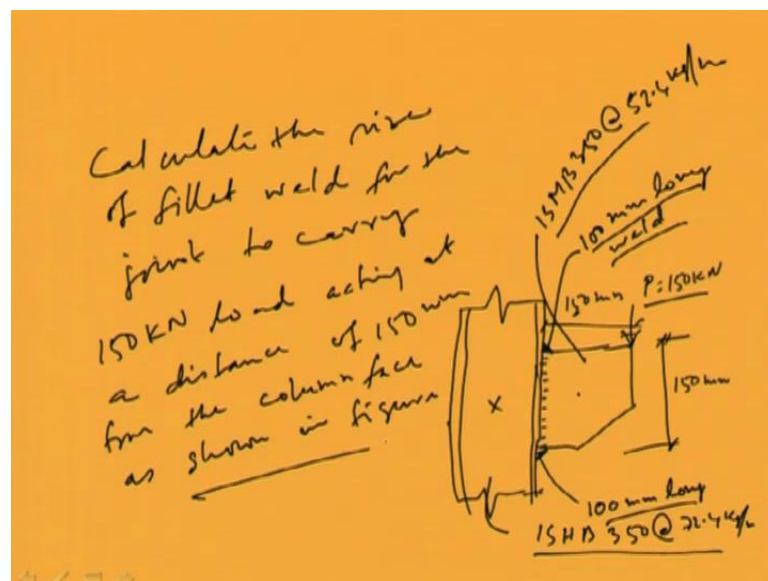 Calculate the size
of fillet weld for the
joint to carry
150KN load acting at
a distance of 150 mm
from the column face
as shown in figure
ISMB 350 @ 52.4 kg/m
100 mm long
weld
150mm
P=150KN
X
150mm
100 mm long
ISHB 350 @ 72.4 kg/m